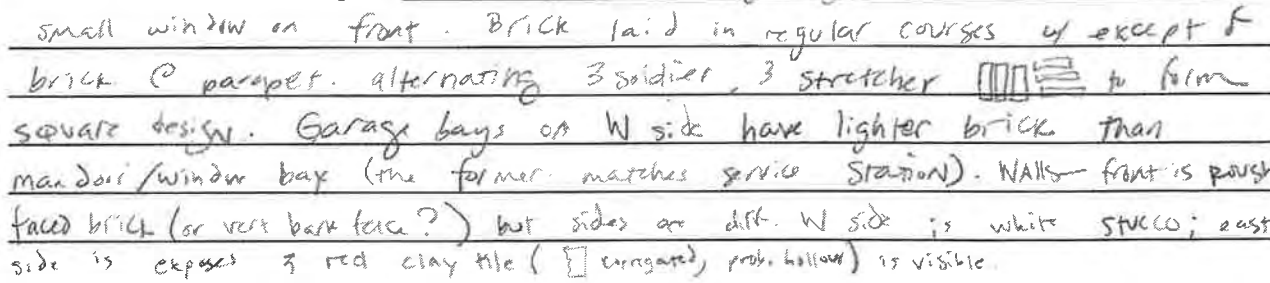 small window on front. Brick laid in regular courses w/ except f
brick @ parapet. alternating 3 soldier, 3 stretcher to form
square design. Garage bays on W side have lighter brick than
man door/window bay (the former matches service station). Walls - front is rough
faced brick (or vert bark face?) but sides are diff. W side is white stucco; east
side is exposed & red clay tile (corrugated, prob. hollow) is visible.